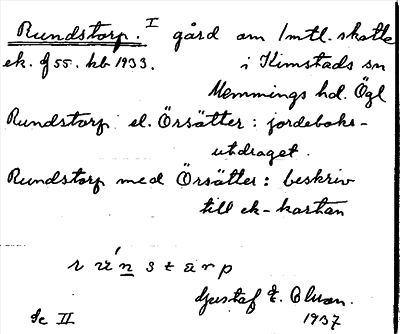 Rundstorp. I gård om 1 mtl. skatte
ek. f 55. hb 1933. i Kimstads sn
Memmings hd. Ögl
Rundstorp el. Örsätter: jordeboks-
utdraget.
Rundstorp med Örsätter: beskriv
till ek-kartan
r ú n s t a r p
Gustaf E. Olson.
Se II 1937